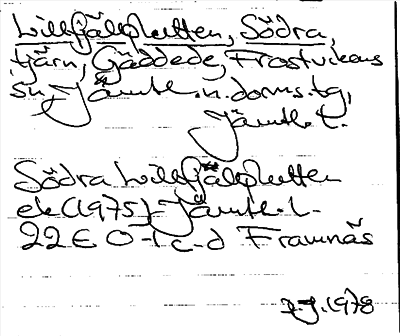 Lillfjälvhatten, Södra,
tjärn, Gäddede, Frostvikens
sn, Jämtl. n. doms. tg,
Jämtl. l.
Södra Lillfjälvhatten
ek (1975) Jämtl. l.
22E 0-1 c-d Framnäs
1978